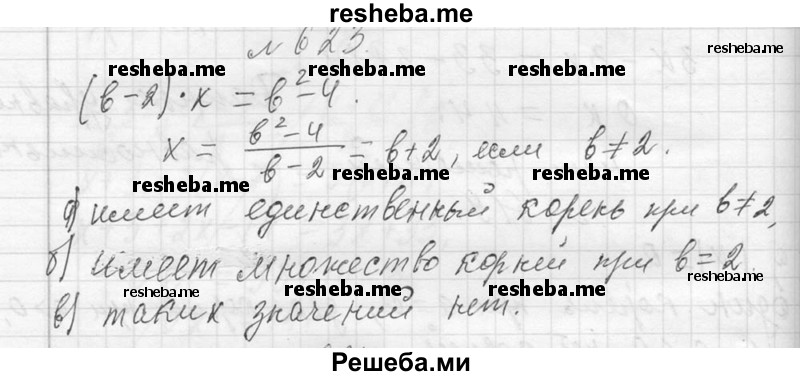 resheba.me
№ 623.
resheba.me
resheba.me resheba.me resheba.me
(b-2)·x = b²-4.
x = b²-4 / b-2 = b+2, если b≠2.
resheba.me resheba.me resheba.me
а) имеет единственный корень при b≠2,
б) имеет множество корней при b=2
resheba.me resheba.me resheba.me resheba.me
в) таких значений нет.
Решеба.ми